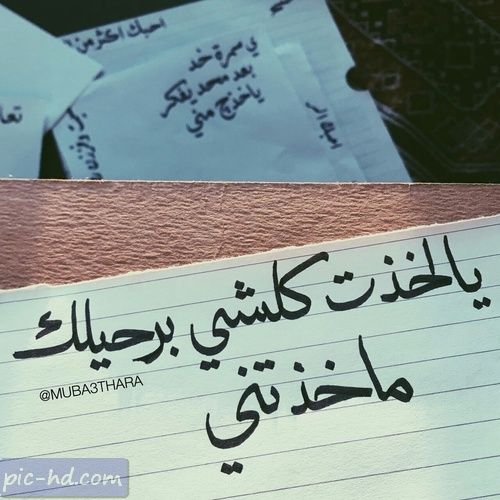 احبك اكثر من
يي سمرة خد
بعد محد يفكر
ياخذج مني
احبك
تعا
يالخذت كلشي برحيلك
ماخذتني
@MUBA3THARA
pic-hd.com